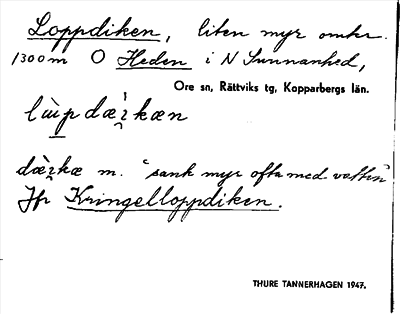 Loppdiken, liten myr omkr.
1300 m O Heden i N Sunnanhed,
Ore sn, Rättviks tg, Kopparbergs län.
dæ̀kæ m. "sank myr ofta med vatten"
Jfr Kringelloppdiken.
THURE TANNERHAGEN 1947.